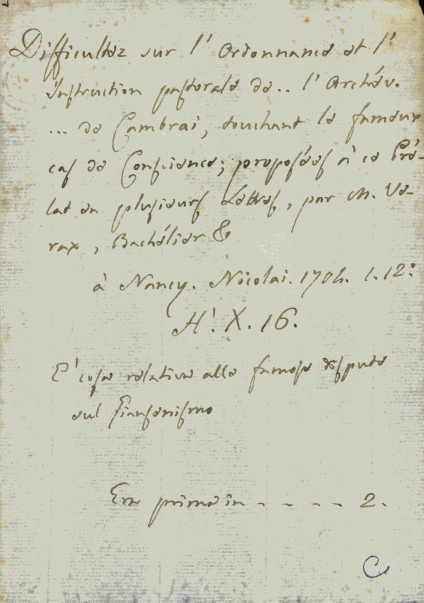 Difficultez sur l' Ordonnance et l'
Instruction pastorale de .. l' Archév.
... de Cambrai, touchant le fameux
cas de Conscience; proposées à ce Pré-
lat en plusieurs Lettres, par M. Ve-
rax, Bachélier &
à Nancy. Nicolai. 1704. l. 12:°
H! X. 16.
E' cosa relativa alle famose dispute
sul Giansenismo
Era prima in - - - - - 2.
C